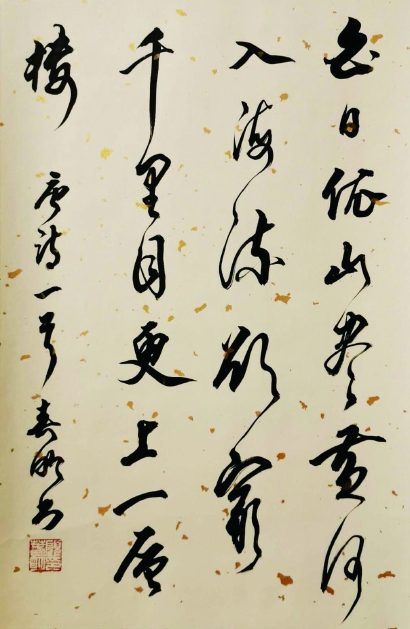 白日依山尽黄河
入海流欲穷
千里目更上一层
楼 唐诗一首 春明书